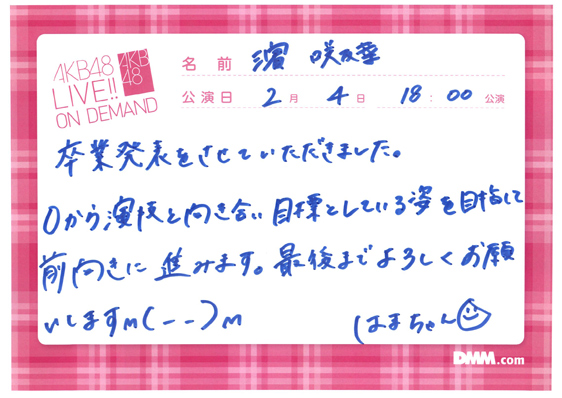 AKB48
LIVE!!
ON DEMAND
AKB
48
名前 濵 咲友菜
公演日 2月 4日 18:00 公演
卒業発表をさせていただきました。
0から演技と向き合い目標としている姿を目指して
前向きに進みます。最後までよろしくお願
いしますm(--)m
はまちゃん
DMM.com